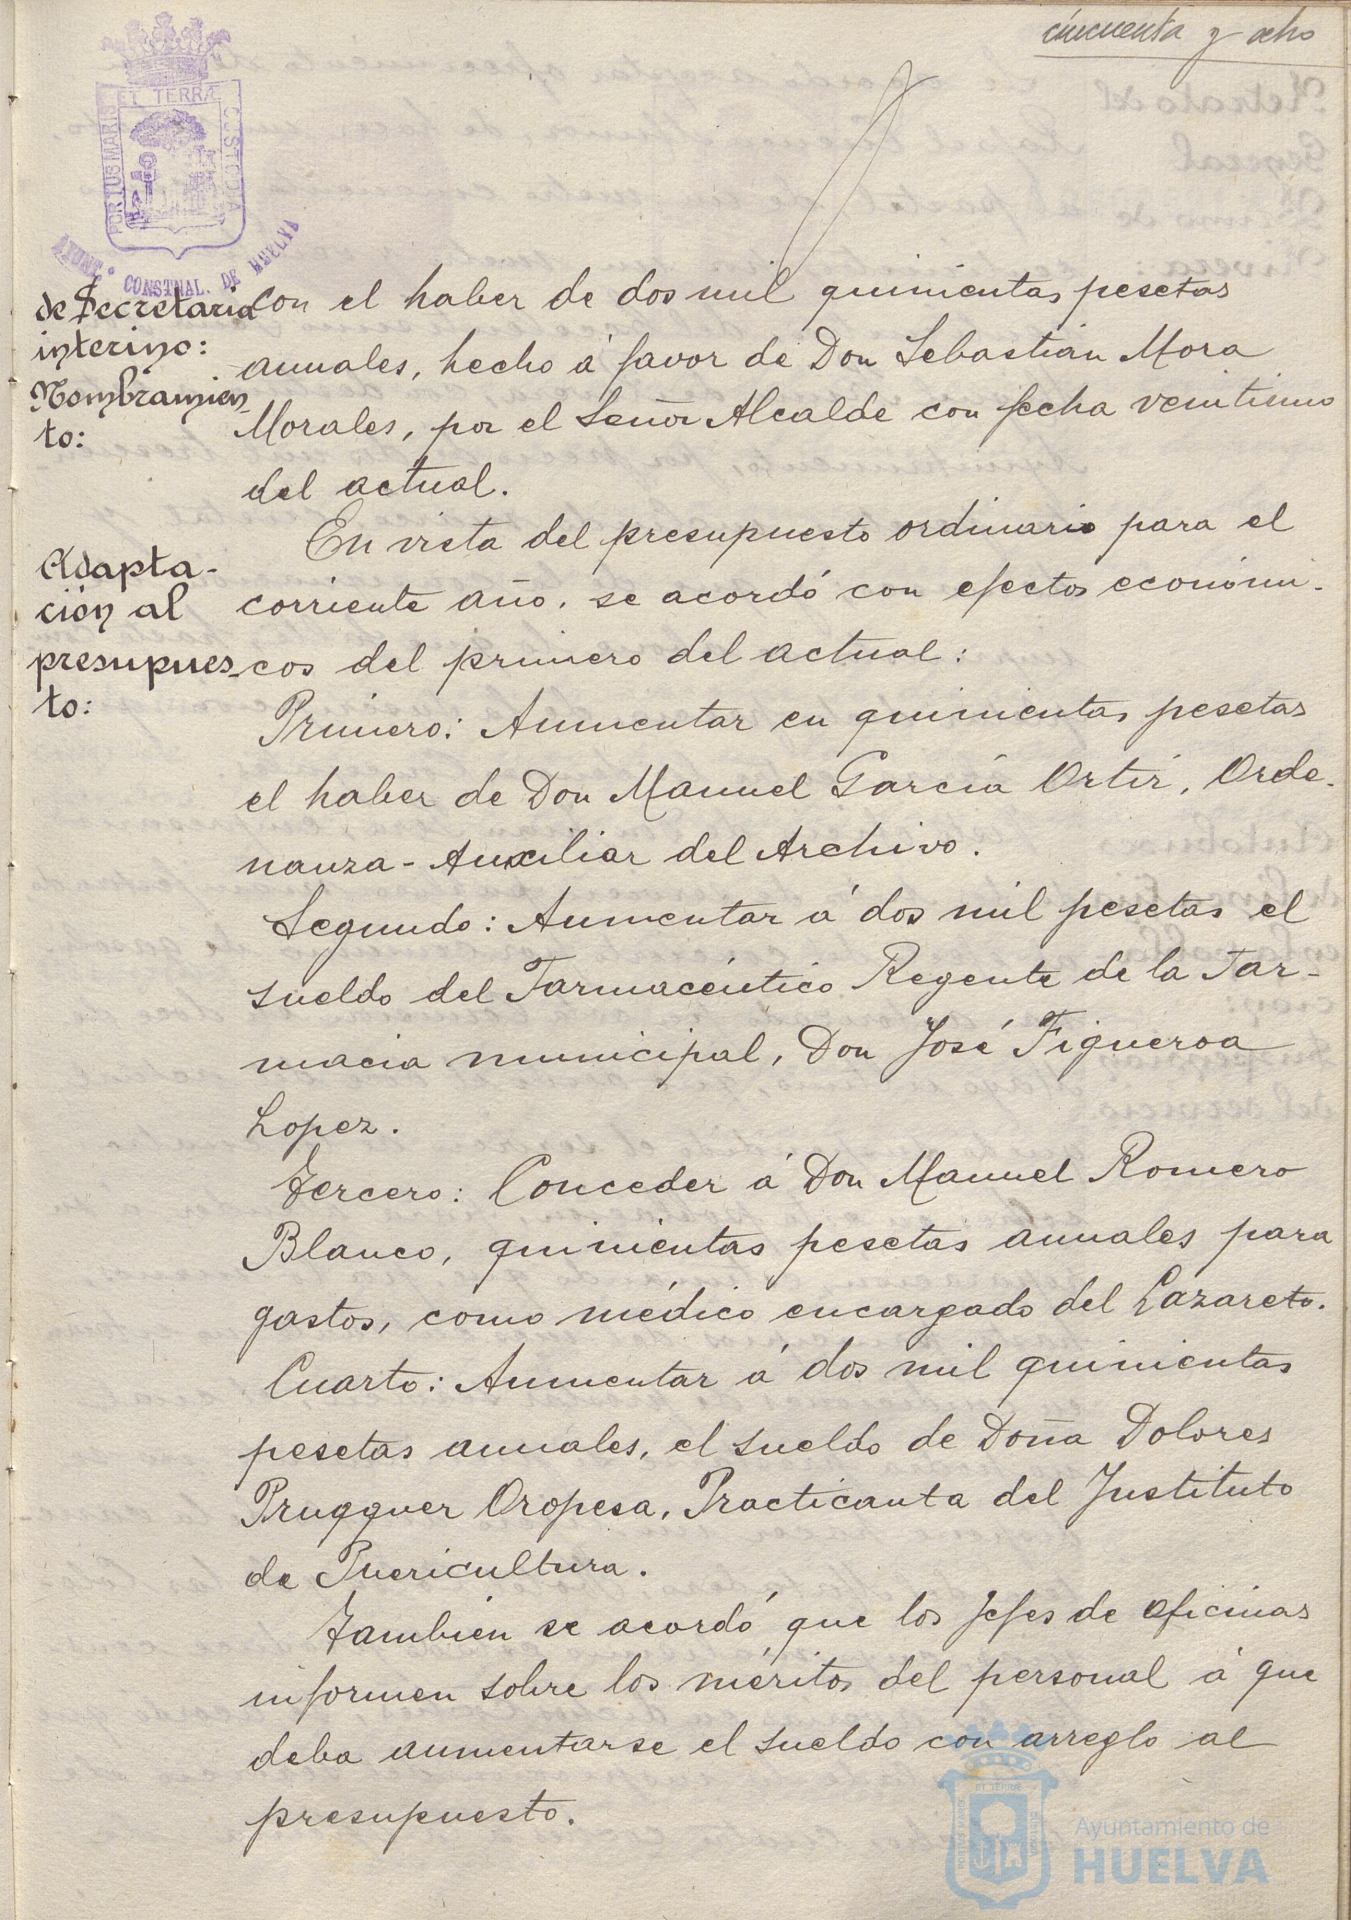 cincuenta y ocho
PORTUS MARIS ET TERRÆ CUSTODIA
AYUNT. CONSTNAL. DE HUELVA
de Secretaria
interino:
Nombramien-
to:
con el haber de dos mil quinientas pesetas
anuales, hecho á favor de Don Sebastián Mora
Morales, por el Señor Alcalde con fecha veintiuno
del actual.
Adapta-
ción al
presupues-
to:
En vista del presupuesto ordinario para el
corriente año, se acordó con efectos económi-
cos del primero del actual:
Primero: Aumentar en quinientas pesetas
el haber de Don Manuel García Ortiz, Orde-
nanza-Auxiliar del Archivo.
Segundo: Aumentar á dos mil pesetas el
sueldo del Farmacéutico Regente de la Far-
macia municipal, Don José Figueroa
Lopez.
Tercero: Conceder á Don Manuel Romero
Blanco, quinientas pesetas anuales para
gastos, como médico encargado del Lazareto.
Cuarto: Aumentar á dos mil quinientas
pesetas anuales, el sueldo de Doña Dolores
Prugguer Oropesa, Practicanta del Instituto
de Puericultura.
También se acordó que los Jefes de oficinas
informen sobre los méritos del personal á que
deba aumentarse el sueldo con arreglo al
presupuesto.
Ayuntamiento de
HUELVA